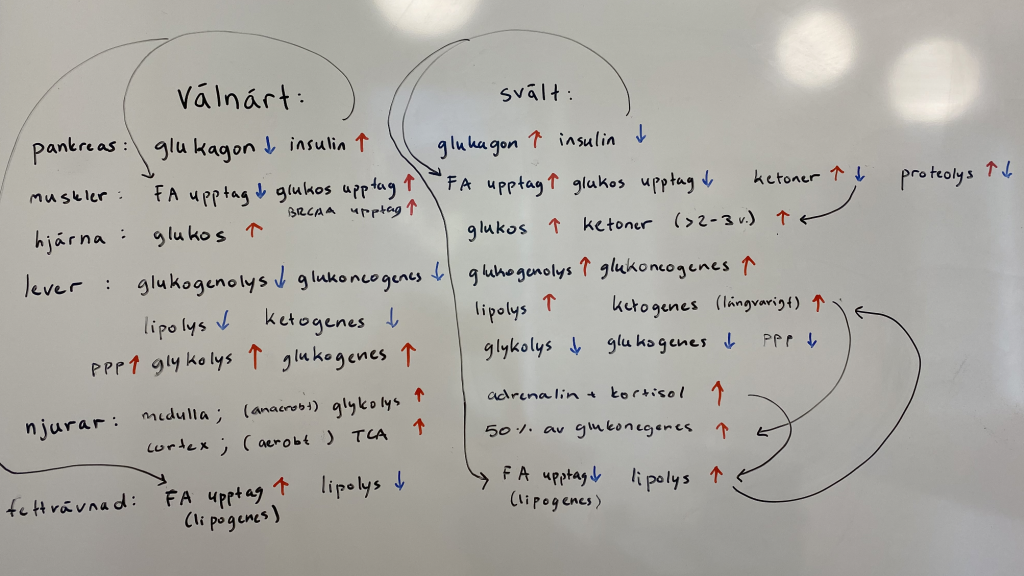 Välnärt:
pankreas: glukagon ↓ insulin ↑
muskler: FA upptag ↓ glukos upptag ↑
BRCAA upptag ↑
hjärna: glukos ↑
lever: glukogenolys ↓ glukoneogenes ↓
lipolys ↓ ketogenes ↓
PPP ↑ glykolys ↑ glukogenes ↑
njurar: medulla; (anaerobt) glykolys ↑
cortex; (aerobt) TCA ↑
fettvävnad: FA upptag ↑ lipolys ↓
(lipogenes)
svält:
glukagon ↑ insulin ↓
FA upptag ↑ glukos upptag ↓ ketoner ↑ ↓ proteolys ↑↓
glukos ↑ ketoner (>2-3 v.) ↑
glukogenolys ↑ glukoneogenes ↑
lipolys ↑ ketogenes (långvarigt) ↑
glykolys ↓ glukogenes ↓ PPP ↓
adrenalin + kortisol ↑
50 % av glukonegenes ↑
FA upptag ↓ lipolys ↑
(lipogenes)